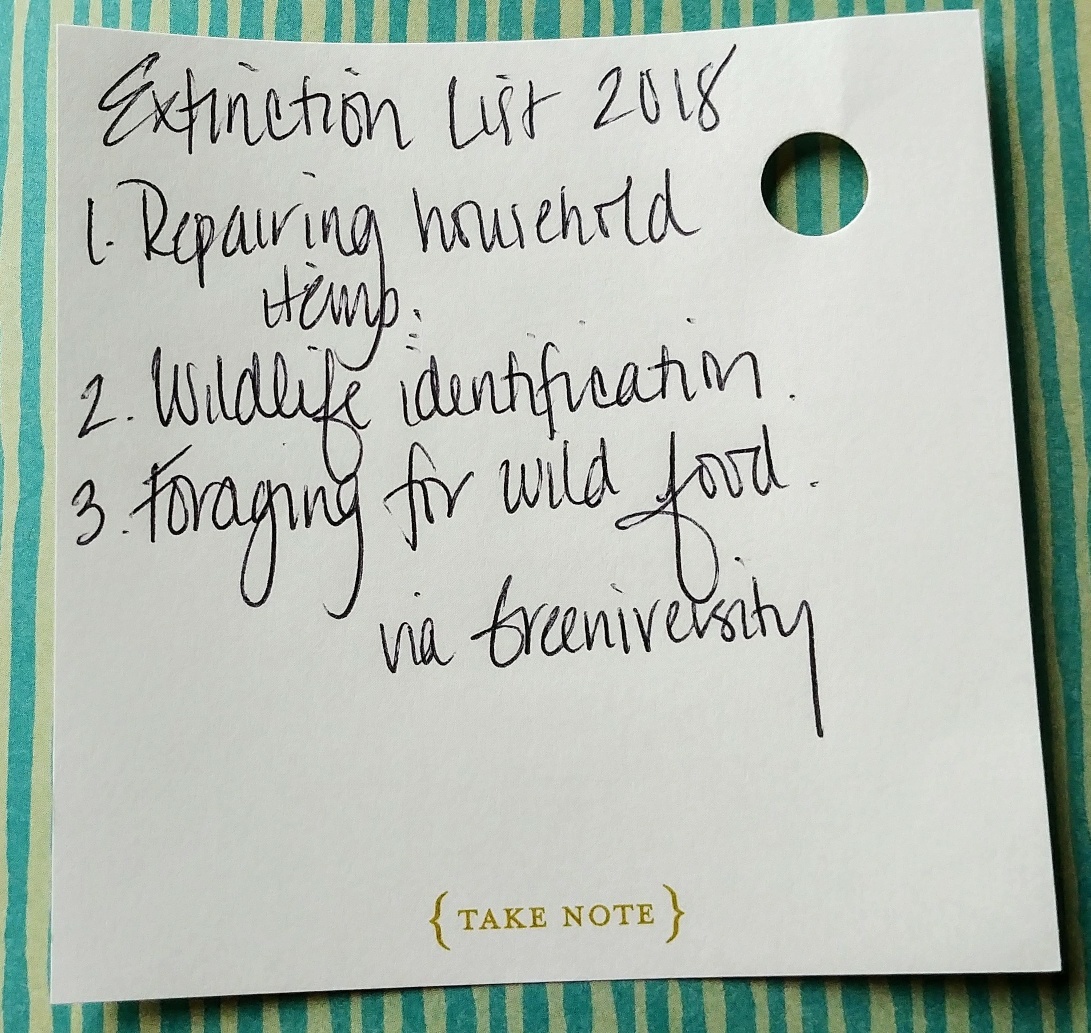 Extinction List 2018
1. Repairing household
items.
2. Wildlife identification.
3. Foraging for wild food.
via Greeniversity
{ TAKE NOTE }